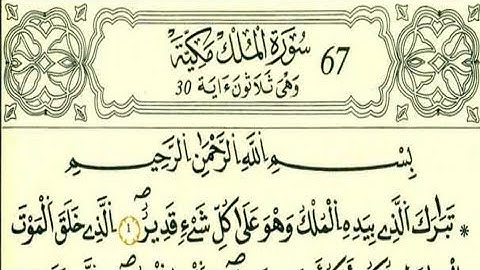 67 سُورَةُ الْمُلْكِ مَكِّيَّةٌ
وَهْيَ ثَلَاثُونَ ءَايَةً 30
بِسْمِ اِ۬للَّهِ اِ۬لرَّحْمَٰنِ اِ۬لرَّحِيمِ
* تَبَٰرَكَ اَ۬لَّذِے بِيَدِهِ اِ۬لْمُلْكُ وَهُوَ عَلَىٰ كُلِّ شَےْءٖ قَدِيرٌ 1 اِ۬لَّذِے خَلَقَ اَ۬لْمَوْتَ